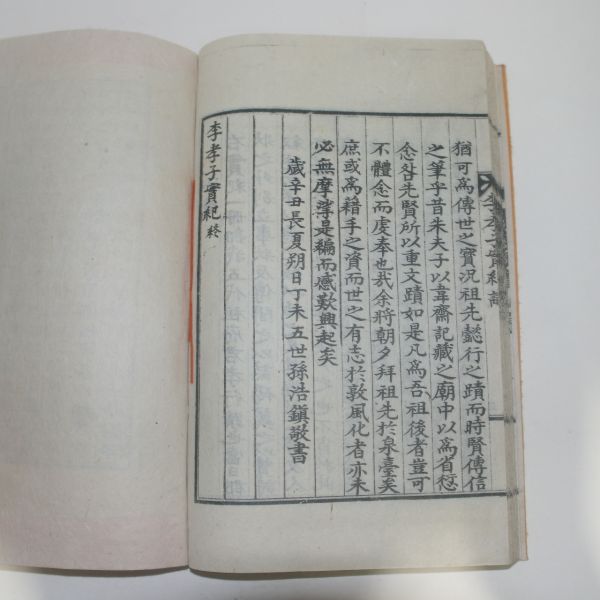 猶可爲傳世之實況祖先懿行之蹟而時賢傳信
之筆乎昔朱夫子以韋齋記藏之廟中以爲省愆
念咎先賢所以重文蹟如是凡爲吾祖後者豈可
不體念而虔奉也哉余將朝夕拜祖先於泉臺矣
庶或爲藉手之資而世之有志於敦風化者亦未
必無摩挲是編而感歎興起矣
歲辛丑長夏朔日丁未五世孫浩鎭敬書
李孝子實紀終